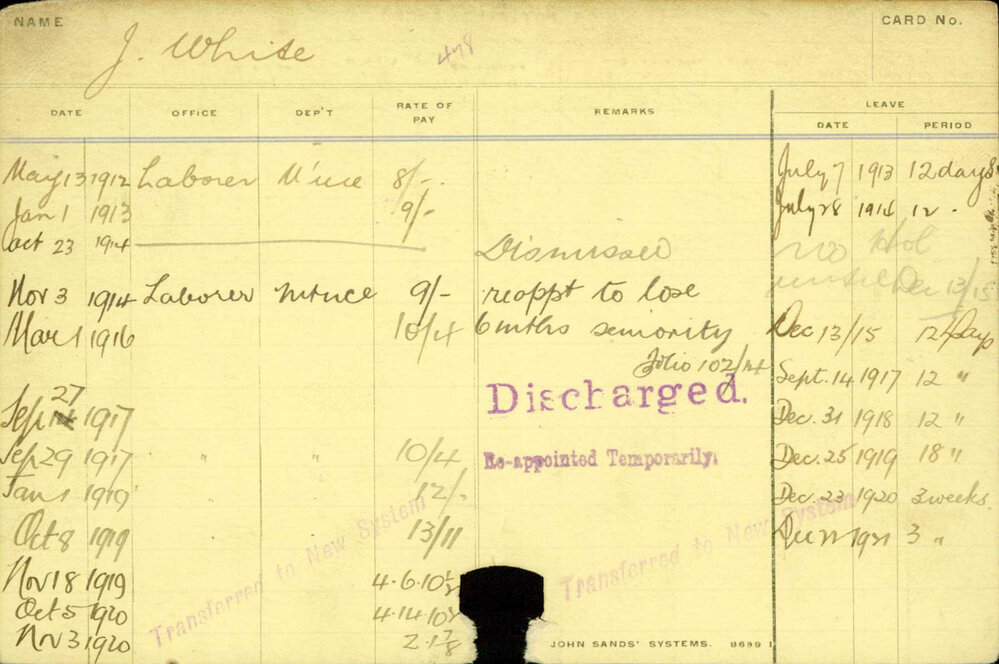 NAME
CARD No.
J. White
478
DATE OFFICE DEP'T RATE OF PAY REMARKS LEAVE
DATE PERIOD
May 13 1912 Laborer 8/-
Jan 1 1913 9/-
Oct 23 1914 Dismissed
Nov 3 1914 Laborer 9/- reappt to lose
Mar 1 1916 10/4 6 mths seniority
folio 102/14
Discharged.
Sep 27 1917
Sep 29 1917 " " 10/4 Re-appointed Temporarily.
Jan 1 1919 12/-
Oct 8 1919 13/11
Nov 18 1919 4.6.10½
Oct 5 1920 4.14.10½
Nov 3 1920
July 7 1913 12 days
July 28 1914 12 "
no Hol
until Dec 13/15
Dec 13/15 12 Days
Sept. 14 1917 12 "
Dec. 31 1918 12 "
Dec. 25 1919 18 "
Dec. 23 1920 3 weeks.
Dec 22 1921 3 "
Transferred to New System
Transferred to New System
JOHN SANDS' SYSTEMS. 8699